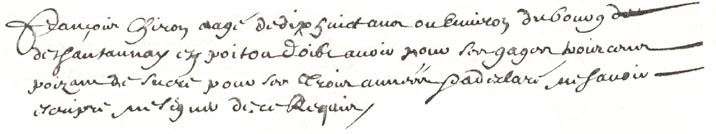 François Chiron aagé de dix huict ans ou Environ du bourg de
de Chantaunay en poitou doibt avoir pour ses gages trois cens
poizant de sucre pour ses trois années Et a declaré ne savoir
escripre ne signer de ce Requis